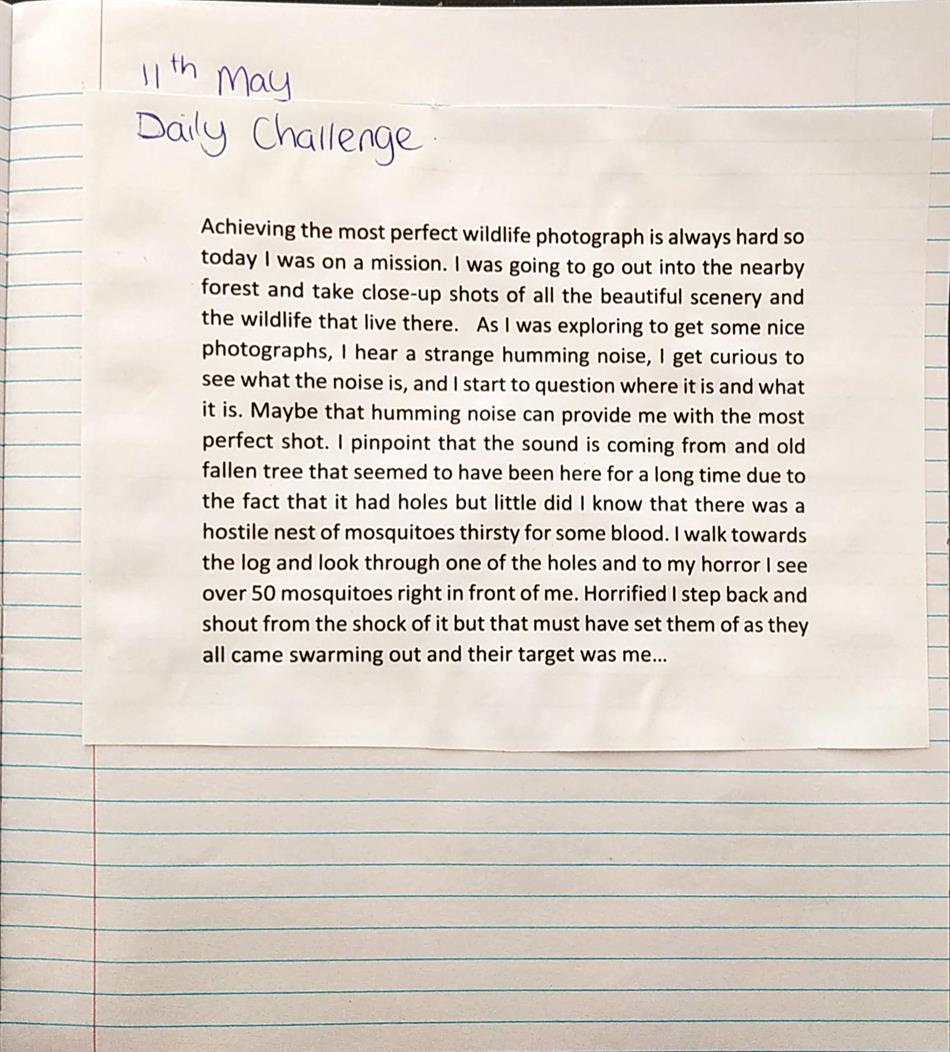 11th May
Daily Challenge.
Achieving the most perfect wildlife photograph is always hard so
today I was on a mission. I was going to go out into the nearby
forest and take close-up shots of all the beautiful scenery and
the wildlife that live there.   As I was exploring to get some nice
photographs, I hear a strange humming noise, I get curious to
see what the noise is, and I start to question where it is and what
it is. Maybe that humming noise can provide me with the most
perfect shot. I pinpoint that the sound is coming from and old
fallen tree that seemed to have been here for a long time due to
the fact that it had holes but little did I know that there was a
hostile nest of mosquitoes thirsty for some blood. I walk towards
the log and look through one of the holes and to my horror I see
over 50 mosquitoes right in front of me. Horrified I step back and
shout from the shock of it but that must have set them of as they
all came swarming out and their target was me...